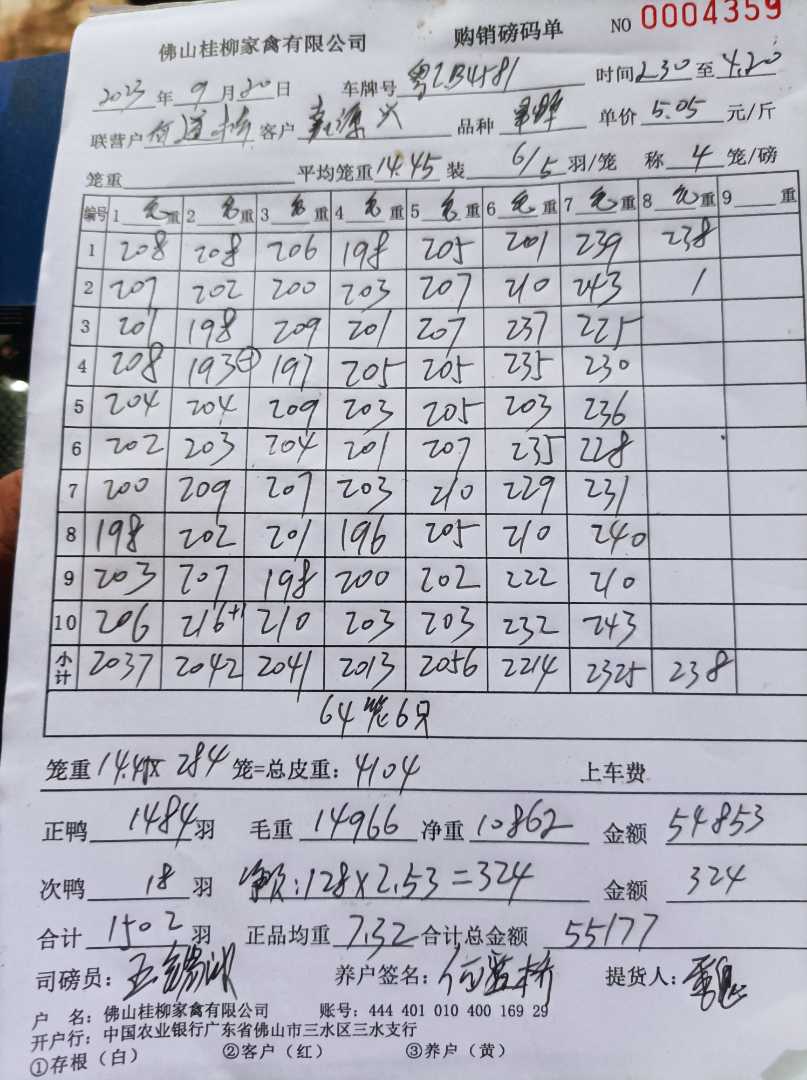 佛山桂柳家禽有限公司 购销磅码单 NO 0004359
2023年9月20日 车牌号 粤 时间2.30至4.20
联营户 客户 品种 单价5.05元/斤
笼重 平均笼重14.45装6/5羽/笼 称4笼/磅
编号 1毛重 2毛重 3毛重 4毛重 5毛重 6毛重 7毛重 8毛重 9重
1 208 208 206 198 205 201 239 238
2 207 202 200 203 207 210 243 1
3 201 198 209 201 207 237 225
4 208 193 197 205 205 235 230
5 204 204 209 203 205 203 236
6 202 203 204 201 207 235 228
7 200 209 207 203 210 229 231
8 198 202 201 196 205 210 240
9 203 207 198 200 202 222 210
10 206 216+1 210 203 203 232 243
小计 2037 2042 2041 2013 2056 2214 2325 238
64笼6只
笼重14.45X 284笼=总皮重:4104 上车费
正鸭1484羽 毛重14966净重10862 金额54853
次鸭18羽 :128X2.53=324 金额324
合计1502羽 正品均重7.32合计总金额55177
司磅员: 养户签名: 提货人:
户 名:佛山桂柳家禽有限公司 账号:444 401 010 400 169 29
开户行:中国农业银行广东省佛山市三水区三水支行
①存根(白) ②客户(红) ③养户(黄)